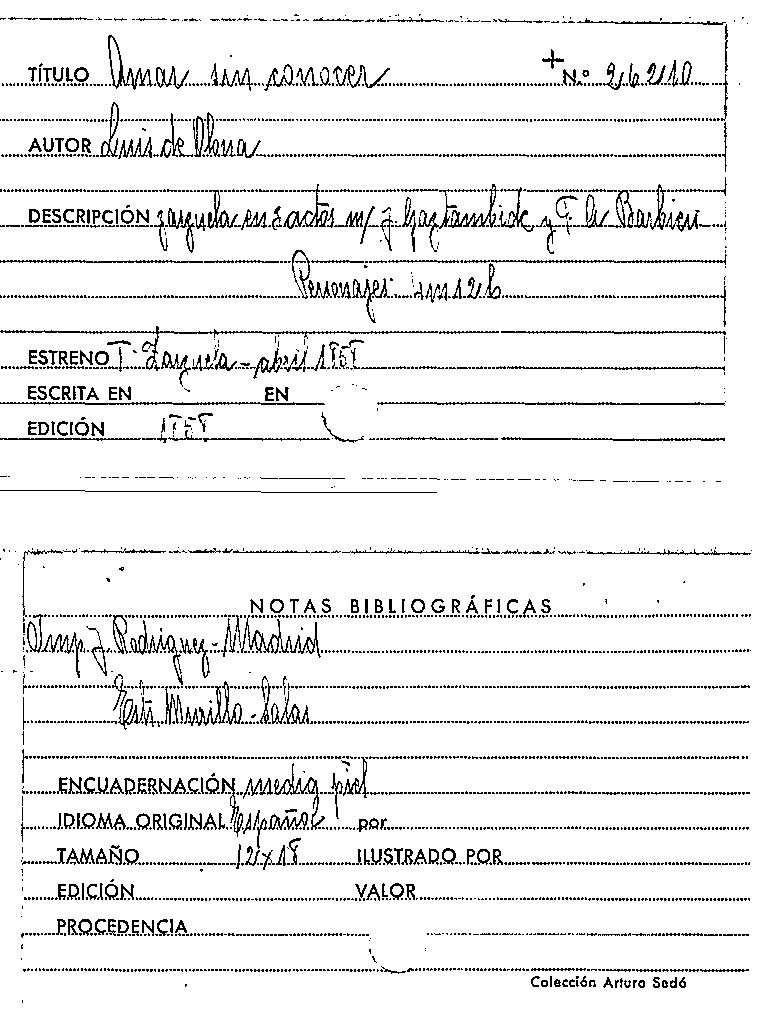 TÍTULO Amar sin conocer + N.º 26210
AUTOR Luis de Olona
DESCRIPCIÓN zarzuela en 3 actos m/ J. Gaztambide y F. A. Barbieri
Personajes: 4 m 12 b
ESTRENO T. Zarzuela - abril 1858
ESCRITA EN EN
EDICIÓN 1858
NOTAS BIBLIOGRÁFICAS
Imp J. Rodriguez - Madrid
Murillo - Salas
ENCUADERNACIÓN media piel
IDIOMA ORIGINAL Español por
TAMAÑO 12 x 18 ILUSTRADO POR
EDICIÓN VALOR
PROCEDENCIA
Colección Arturo Sedó